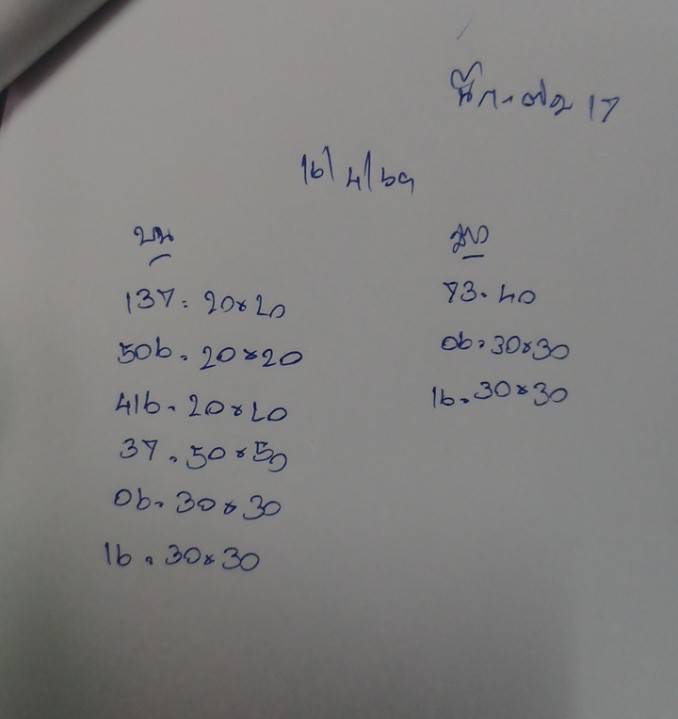 17
16/4/69
บน
137 = 20×20
506 = 20×20
416 = 20×20
37 = 50×50
06 = 30×30
16 = 30×30
ล่าง
73 = 40
06 = 30×30
16 = 30×30